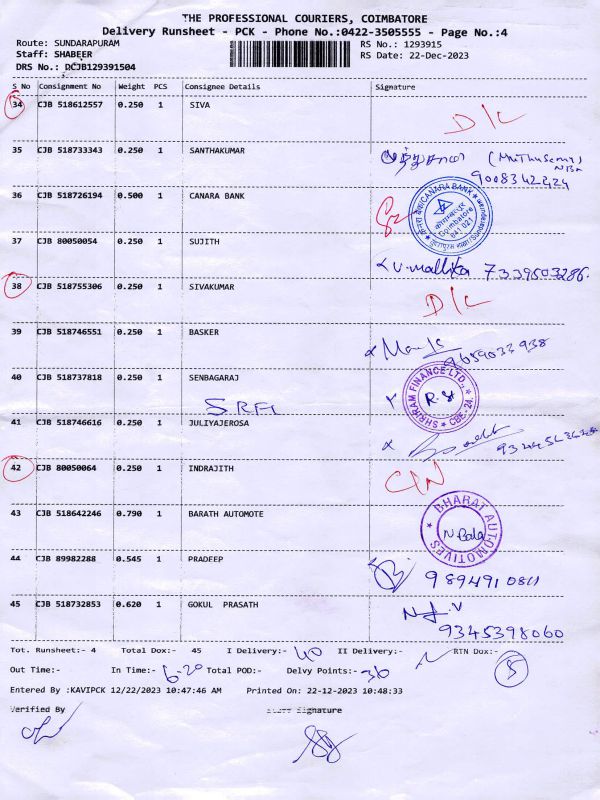 THE PROFESSIONAL COURIERS, COIMBATORE
Delivery Runsheet - PCK - Phone No.:0422-3505555 - Page No.:4
Route: SUNDARAPURAM RS No.: 1293915
Staff: SHABEER RS Date: 22-Dec-2023
DRS No.: DCJB129391504
S No Consignment No Weight PCS Consignee Details Signature
34 CJB 518612557 0.250 1 SIVA D/L
35 CJB 518733343 0.250 1 SANTHAKUMAR
9008342224
36 CJB 518726194 0.500 1 CANARA BANK
CANARA BANK
कोयम्बत्तूर
Coimbatore
641 021
37 CJB 80050054 0.250 1 SUJITH
V. mallika 7339503286.
38 CJB 518755306 0.250 1 SIVAKUMAR D/L
39 CJB 518746551 0.250 1 BASKER
9659033938
40 CJB 518737818 0.250 1 SENBAGARAJ
SRFL
SHRIRAM FINANCE LTD., CBE-24.
41 CJB 518746616 0.250 1 JULIYAJEROSA
42 CJB 80050064 0.250 1 INDRAJITH C/N
43 CJB 518642246 0.790 1 BARATH AUTOMOTE
BHARAT AUTOMOTIVES
N Bala
44 CJB 89982288 0.545 1 PRADEEP
9894910811
45 CJB 518732853 0.620 1 GOKUL PRASATH
9345398060
Tot. Runsheet:- 4 Total Dox:- 45 I Delivery:- 40 II Delivery:- RTN Dox:- 5
Out Time:- In Time:- 6-20 Total POD:- Delvy Points:- 36
Entered By :KAVIPCK 12/22/2023 10:47:46 AM Printed On: 22-12-2023 10:48:33
Verified By Staff Signature